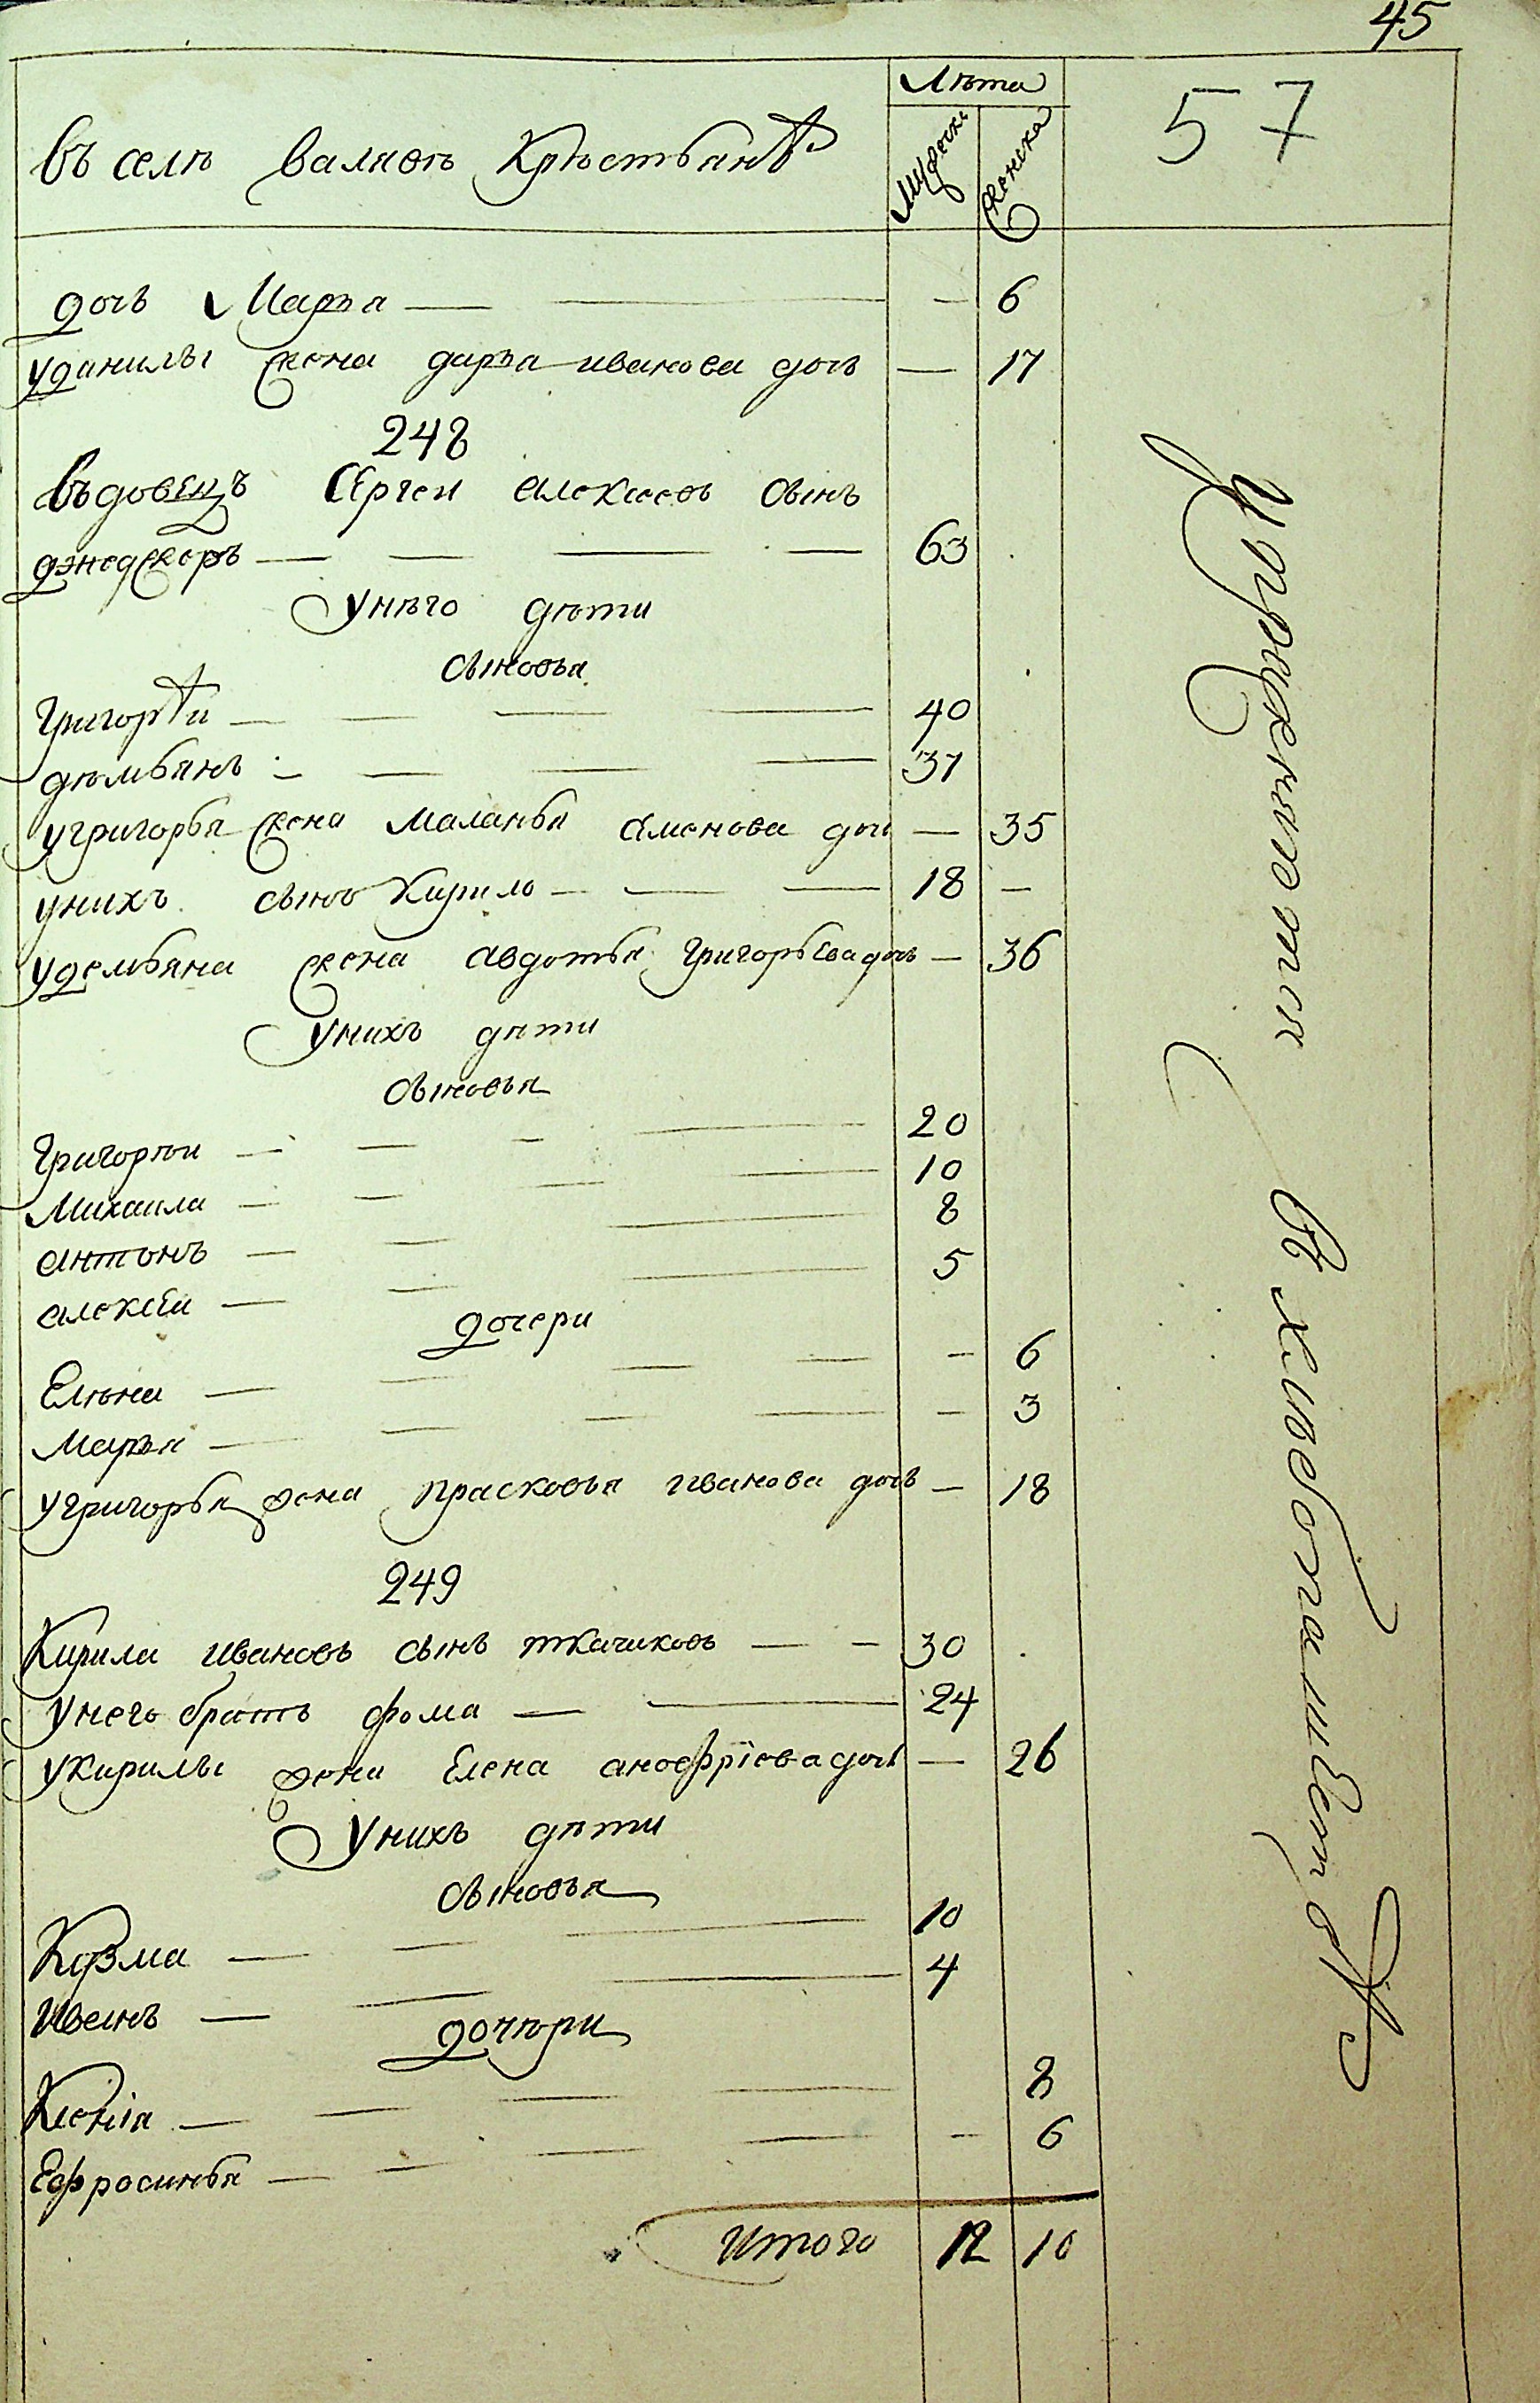 45
Лѣта
57
Въ селѣ Валявѣ Крѣстьянъ
Мужеска
Женска
дочь Марья — — — 6
уданилы жена дарья иванова дочь — 17
248
Въдовецъ Сергеи алексеевъ сынъ
— — — — 63
Унѣго дѣти
сыновья
Григорѣи — — — — 40
дѣмьянъ — — — — 37
угригорья жена Маланья семенова дочь — 35
унихъ сынъ Кирило — — — 18 —
удемьяна жена авдотья григорьева дочь — 36
Унихъ дѣти
сыновья
Григорѣи — — — — 20
Михаила — — — — 10
антонъ — — — 8
алексѣи — — — 5
дочери
Елѣна — — — — — 6
Марья — — — — — 3
угригорья жена прасковья иванова дочь — 18
249
Кирила ивановъ сынъ ткачиковъ — — 30
Унего братъ фома — — 24
укирилы жена Елена аноефріева дочь — 26
Унихъ дѣти
сыновья
Козма — — — 10
Иванъ — — — 4
дочѣри
Ксенія — — — — 8
Ефросинья — — — — — 6
Итого 12 10